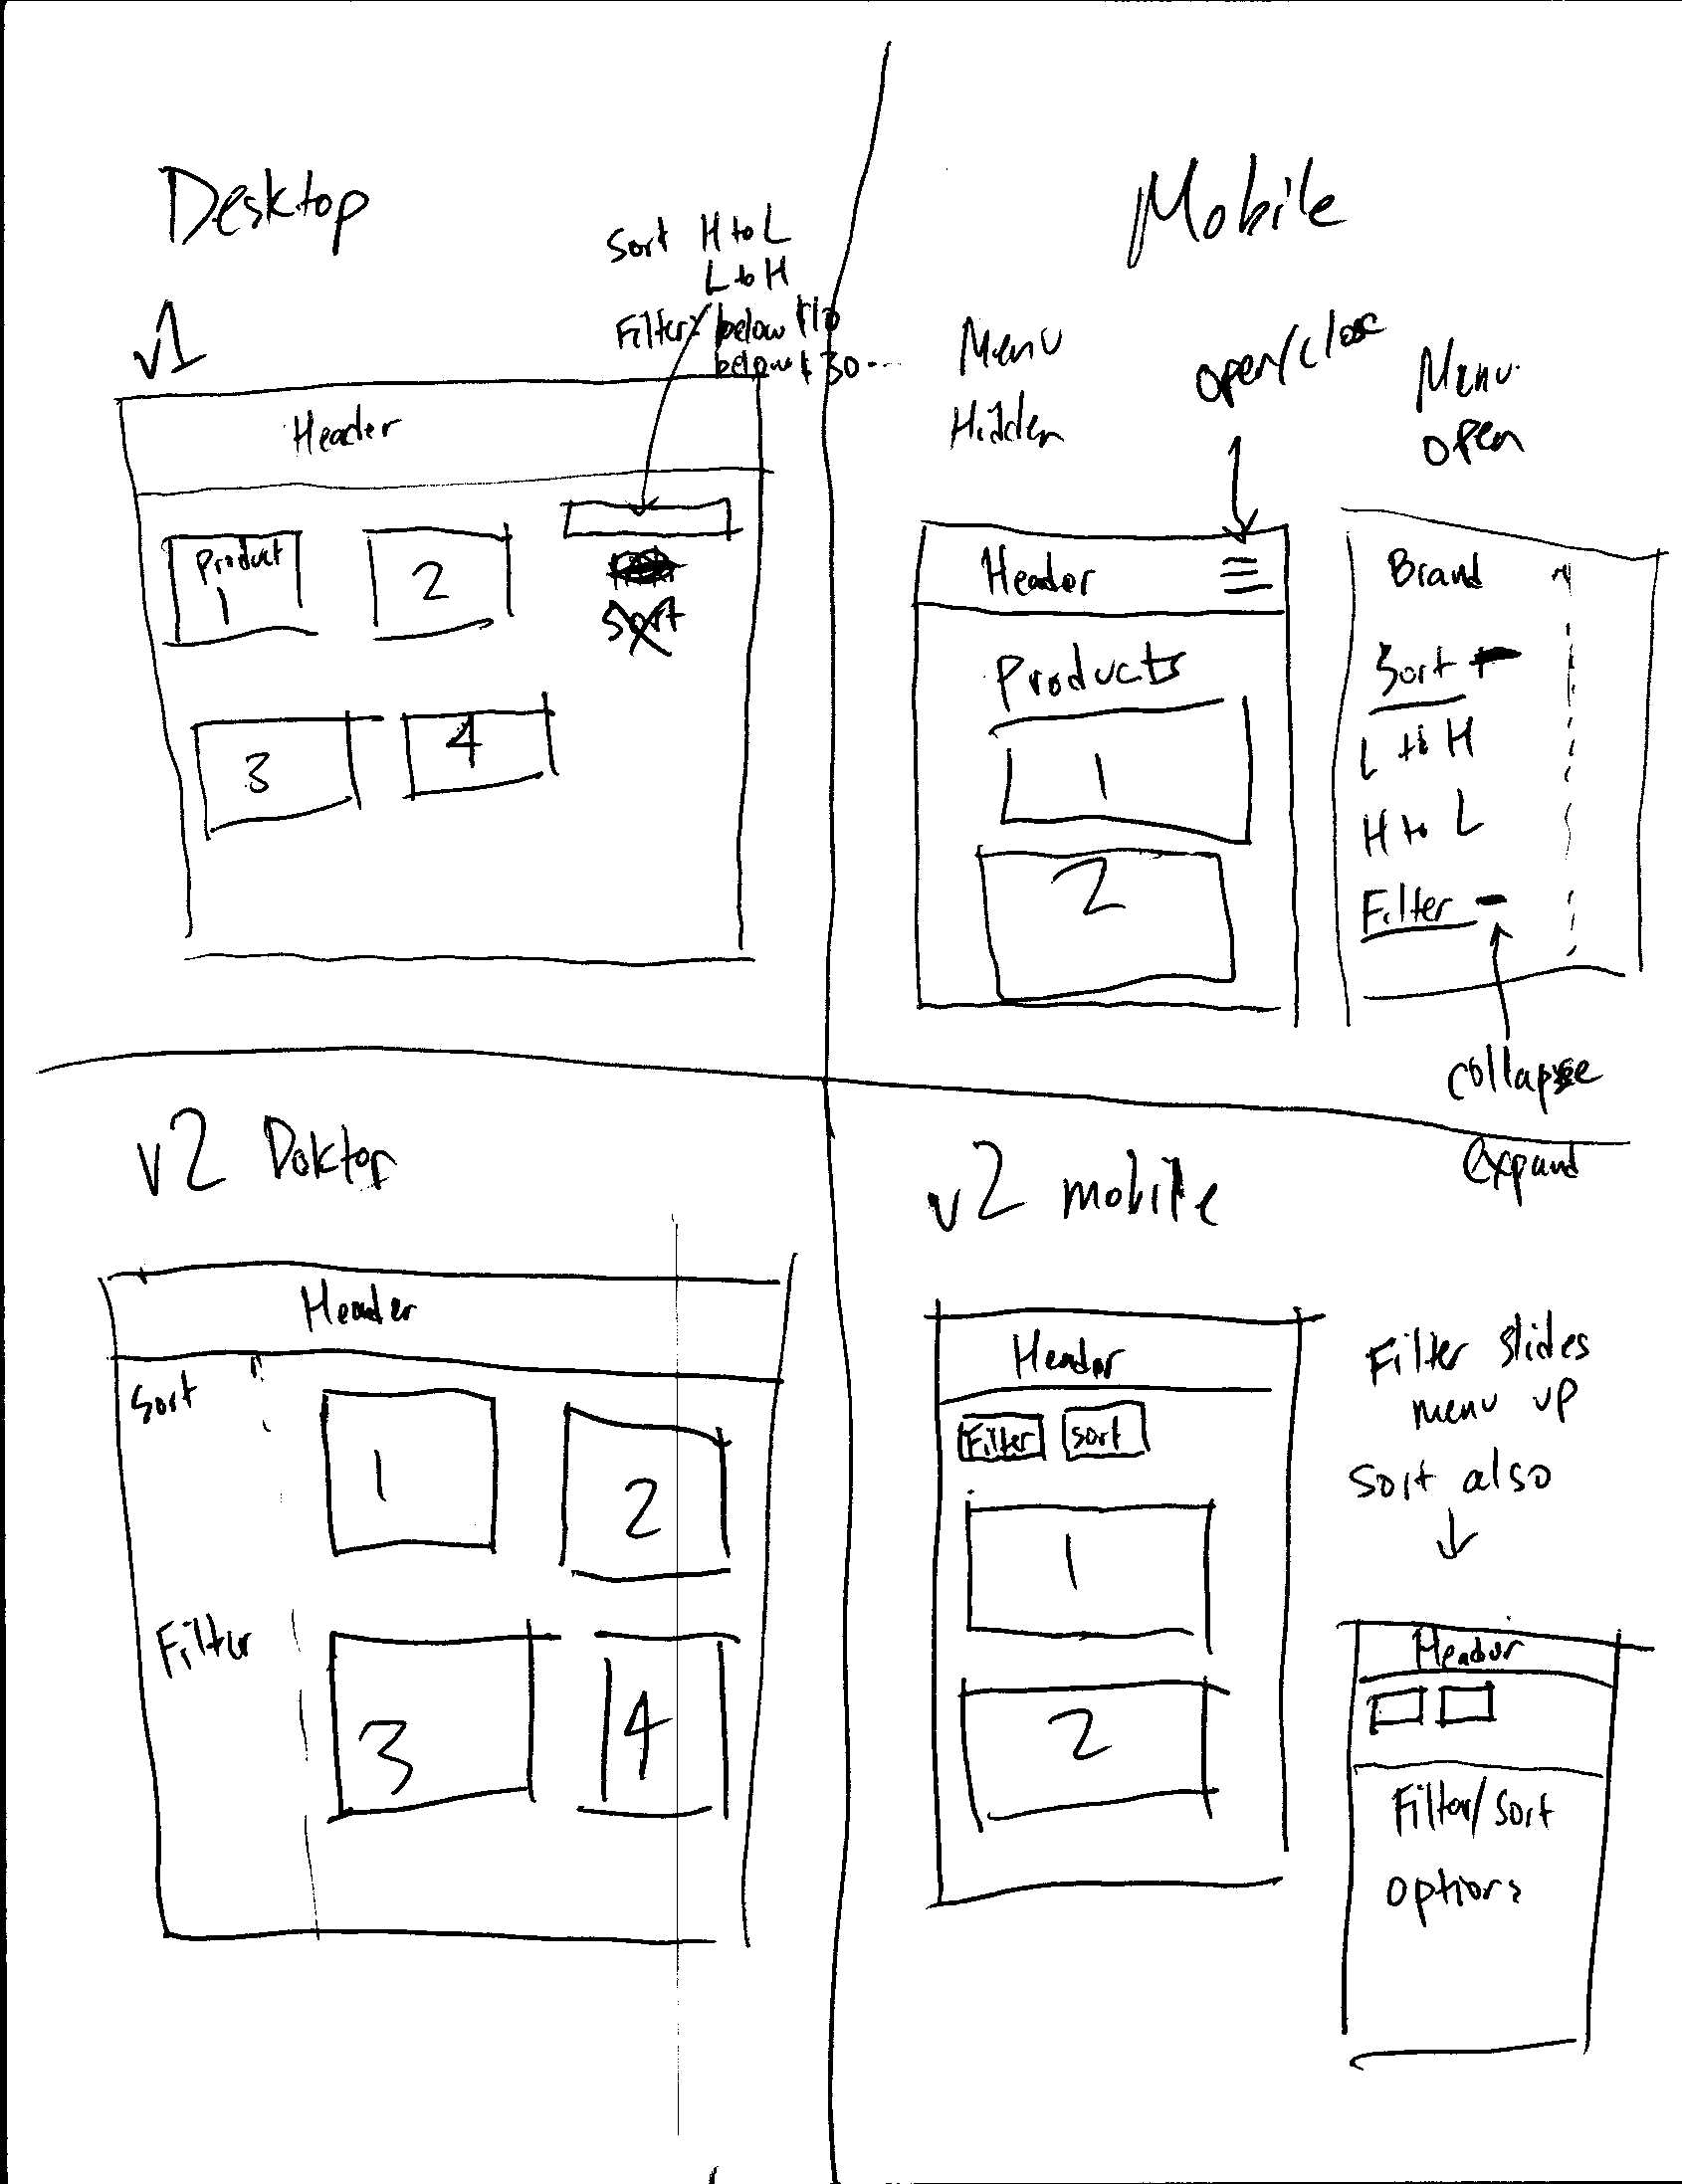 Desktop
v1
Sort H to L
L to H
Filter: below $10
below $30...
Header
Product
1
2
Sort
3
4
Mobile
Menu
Hidden
open/close
Menu
open
Header
Products
1
2
Brand
Sort
L to H
H to L
Filter -
collapse
expand
v2 Desktop
Header
Sort
Filter
1
2
3
4
v2 mobile
Header
Filter
Sort
1
2
Filter slides
menu up
Sort also
Header
Filter/Sort
options